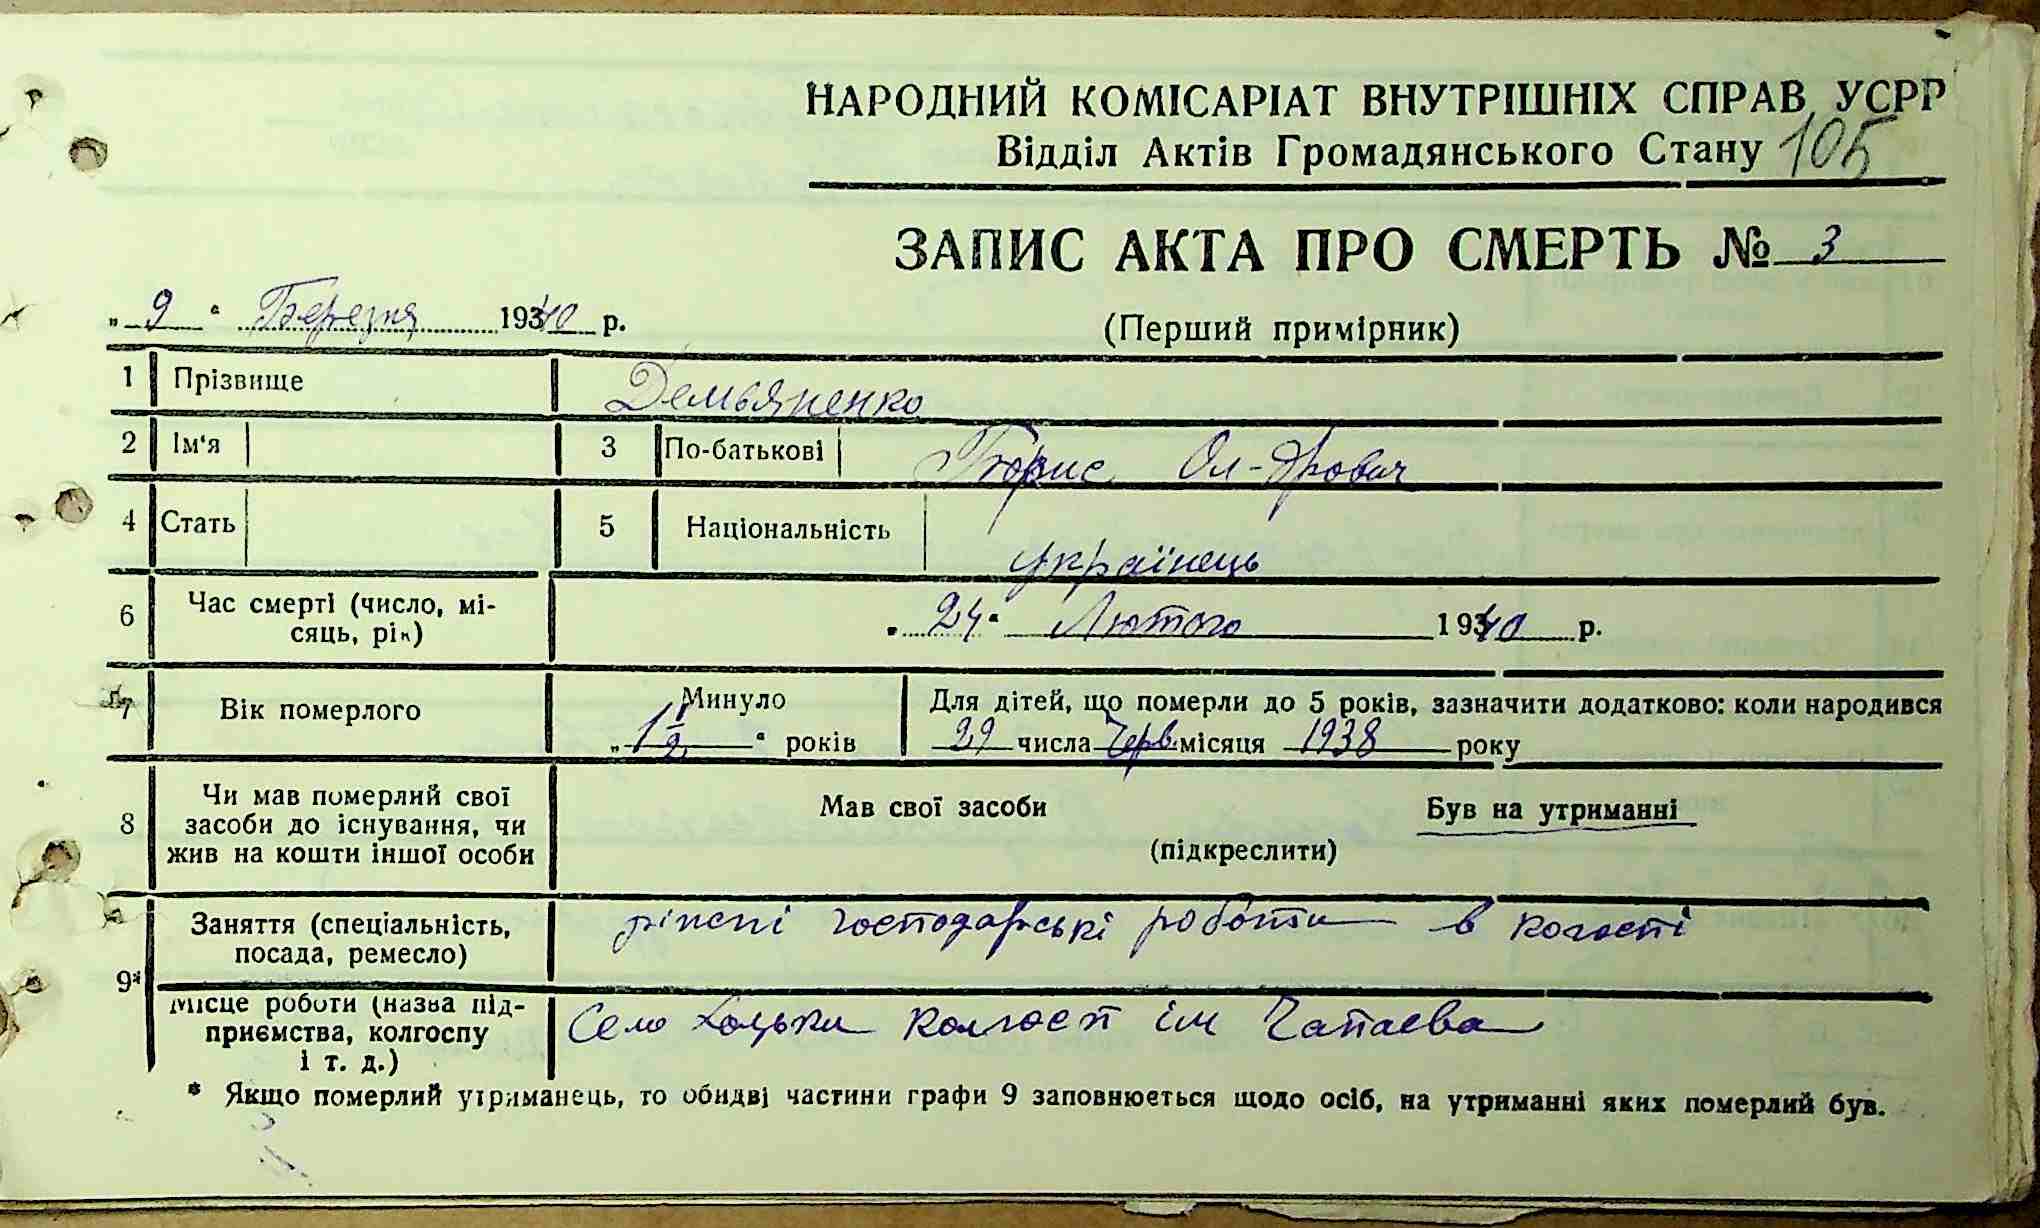 НАРОДНИЙ КОМІСАРІАТ ВНУТРІШНІХ СПРАВ УСРР
Відділ Актів Громадянського Стану 105
ЗАПИС АКТА ПРО СМЕРТЬ № 3
„ 9 “ Березня 1940 р.
(Перший примірник)
1 Прізвище Демьяненко
2 Ім‘я 3 По-батькові Борис Ол-дрович
4 Стать 5 Національність українець
6 Час смерті (число, мі-
сяць, рік) „ 24 “ Лютого 1940 р.
7 Вік померлого Минуло „ 1 1/2 “ років
Для дітей, що померли до 5 років, зазначити додатково: коли народився
29 числа Черв. місяця 1938 року
8 Чи мав померлий свої
засоби до існування, чи
жив на кошти іншої особи
Мав свої засоби Був на утриманні
(підкреслити)
9* Заняття (спеціальність,
посада, ремесло) ріжні господарські роботи в
Місце роботи (назва під-
приємства, колгоспу
і т. д.) Село Хоцьки колгосп ім Чапаєва
* Якщо померлий утриманець, то обидві частини графи 9 заповнюється щодо осіб, на утриманні яких померлий був.